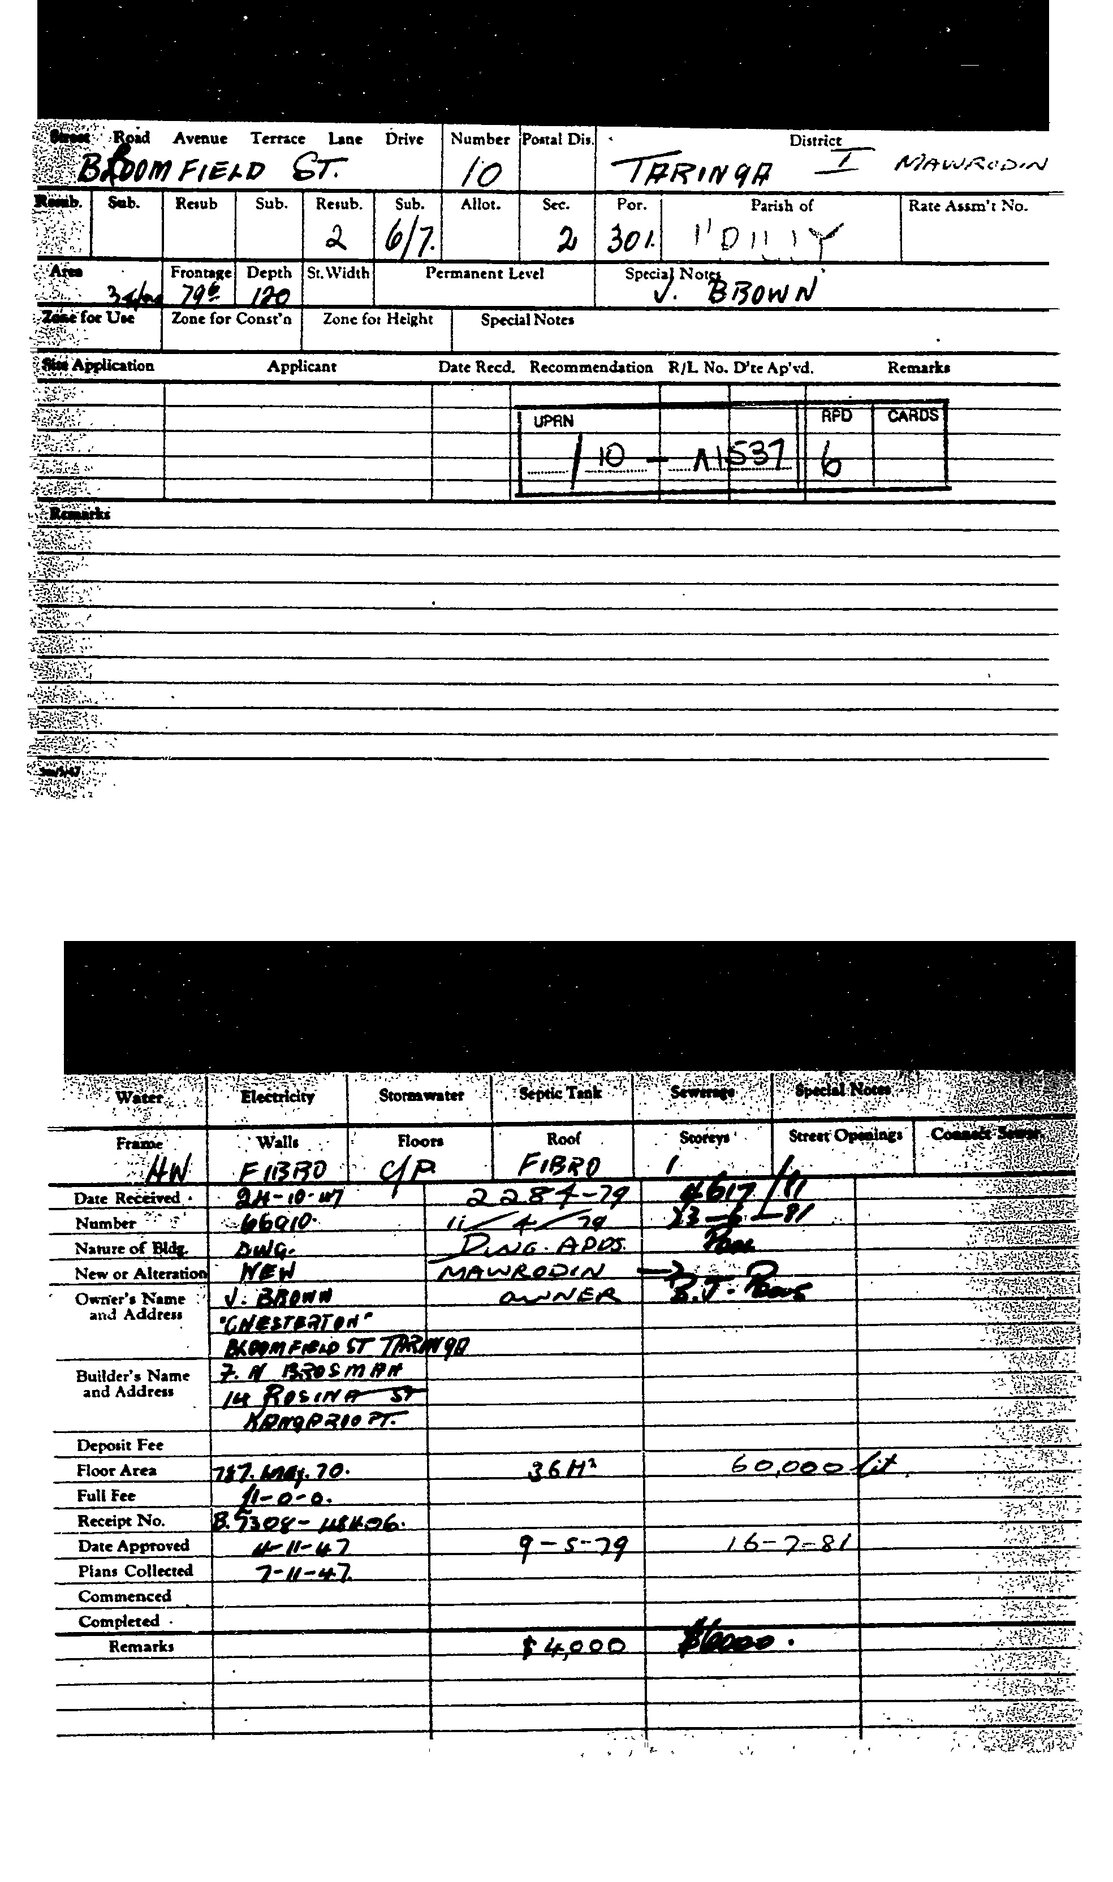 Street Road Avenue Terrace Lane Drive Number Postal Dis. District
BLOOMFIELD ST. 10 TARINGA I MAWRODIN
Resub. Sub. Resub Sub. Resub. Sub. Allot. Sec. Por. Parish of Rate Assm't No.
2 6/7. 2 301.
Area Frontage Depth St. Width Permanent Level Special Notes
79 6 120 J. BROWN
Zone for Use Zone for Const'n Zone for Height Special Notes
Site Application Applicant Date Recd. Recommendation R/L No. D'te Ap'vd. Remarks
UPRN RPD CARDS
/ 10 - 1537 6
Remarks
Water Electricity Stormwater Septic Tank Sewerage Special Notes
Frame Walls Floors Roof Storeys Street Openings Connect Sewer
HW FIBRO C/P FIBRO 1
Date Received 24-10-47 2284-79 4617/81
Number 66910. 11/4/79 23-6-81
Nature of Bldg. DWG. DWG. ADDS. Pool
New or Alteration NEW MAWRODIN →
Owner's Name J. BROWN OWNER B.J. Pools
and Address "CHESTERTON"
BLOOMFIELD ST TARINGA
Builder's Name F. N BROSMAN
and Address 14 ROSINA ST
KANGAROO PT.
Deposit Fee
Floor Area 787. 70. 36M² 60,000 lit
Full Fee 1-0-0.
Receipt No.
Date Approved 4-11-47 9-5-79 16-7-81
Plans Collected 7-11-47
Commenced
Completed
Remarks $4,000 $6000.